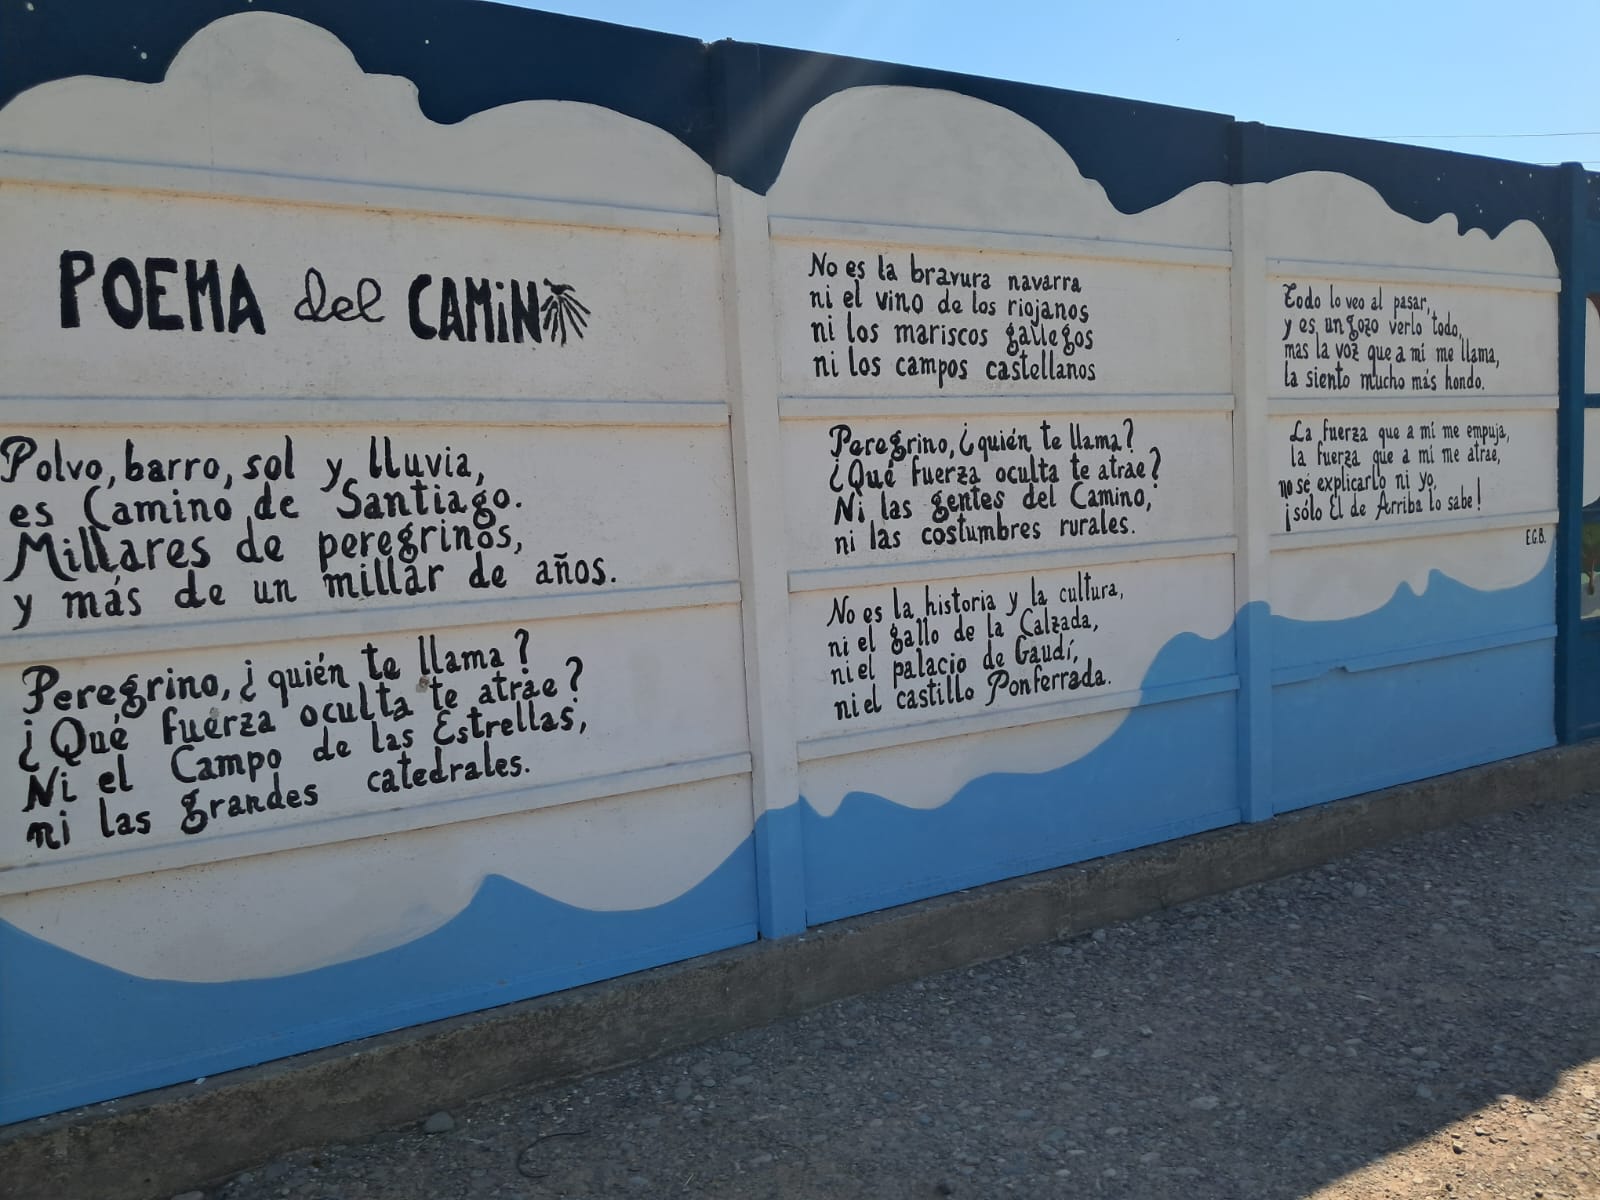 POEMA del CAMINO
Polvo, barro, sol y lluvia,
es Camino de Santiago.
Millares de peregrinos,
y más de un millar de años.
Peregrino, ¿quién te llama?
¿Qué fuerza oculta te atrae?
Ni el Campo de las Estrellas,
ni las grandes catedrales.
No es la bravura navarra
ni el vino de los riojanos
ni los mariscos gallegos
ni los campos castellanos
Peregrino, ¿quién te llama?
¿Qué fuerza oculta te atrae?
Ni las gentes del Camino,
ni las costumbres rurales.
No es la historia y la cultura,
ni el gallo de la Calzada,
ni el palacio de Gaudí,
ni el castillo Ponferrada.
Todo lo veo al pasar,
y es un gozo verlo todo,
mas la voz que a mí me llama,
la siento mucho más hondo.
La fuerza que a mí me empuja,
la fuerza que a mí me atrae,
no sé explicarlo ni yo,
¡sólo El de Arriba lo sabe!
E.G.B.